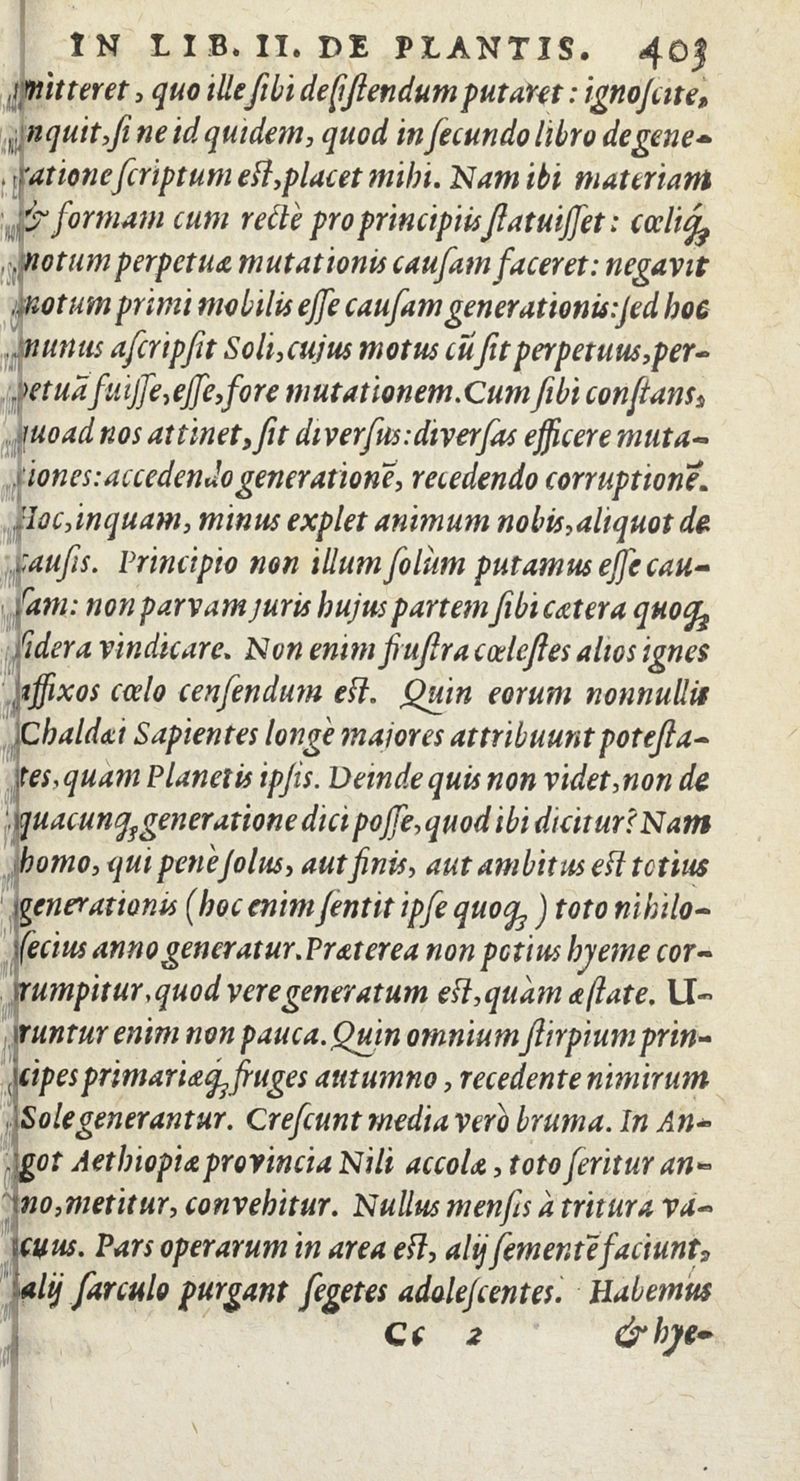 IN LIB. II. DE PLANTIS. 403
mitteret, quo ille sibi desistendum putaret: ignoscite,
inquit, si ne id quidem, quod in secundo libro de gene-
ratione scriptum est, placet mihi. Nam ibi materiam
& formam cum rectè pro principiis statuisset: cœliq;
motum perpetuæ mutationis causam faceret: negavit
motum primi mobilis esse causam generationis: sed hoc
munus ascripsit Soli, cujus motus cū sit perpetuus, per-
petuā fuisse, esse, fore mutationem. Cum sibi constans,
quoad nos attinet, sit diversus: diversas efficere muta-
tiones: accedendo generationē, recedendo corruptionē.
Hoc, inquam, minus explet animum nobis, aliquot de
causis. Principio non illum solùm putamus esse cau-
sam: non parvam juris hujus partem sibi cætera quoq;
sidera vindicare. Non enim frustra cœlestes alios ignes
affixos cœlo censendum est. Quin eorum nonnullis
Chaldæi Sapientes longè majores attribuunt potesta-
tes, quàm Planetis ipsis. Deinde quis non videt, non de
quacunq; generatione dici posse, quod ibi dicitur? Nam
homo, qui penè solus, aut finis, aut ambitus est totius
generationis (hoc enim sentit ipse quoq;) toto nihilo-
secius anno generatur. Præterea non potius hyeme cor-
rumpitur, quod vere generatum est, quàm æstate. U-
runtur enim non pauca. Quin omnium stirpium prin-
cipes primariæq; fruges autumno, recedente nimirum
Sole generantur. Crescunt media verò bruma. In An-
got Aethiopiæ provincia Nili accolæ, toto seritur an-
no, metitur, convehitur. Nullus mensis à tritura va-
cuus. Pars operarum in area est, alij sementē faciunt,
alij sarculo purgant segetes adolescentes. Habemus
Cc 2 & hye-